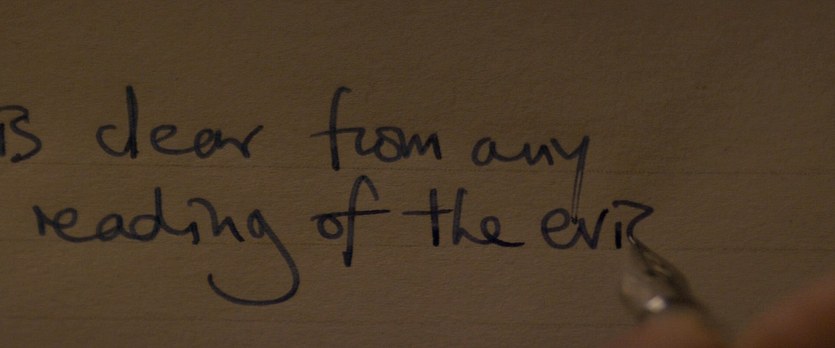 is clear from any
reading of the evi